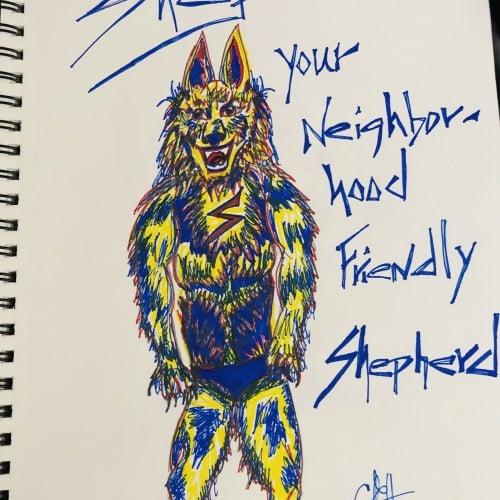 Your
Neighbor-
hood
Friendly
Shepherd
S